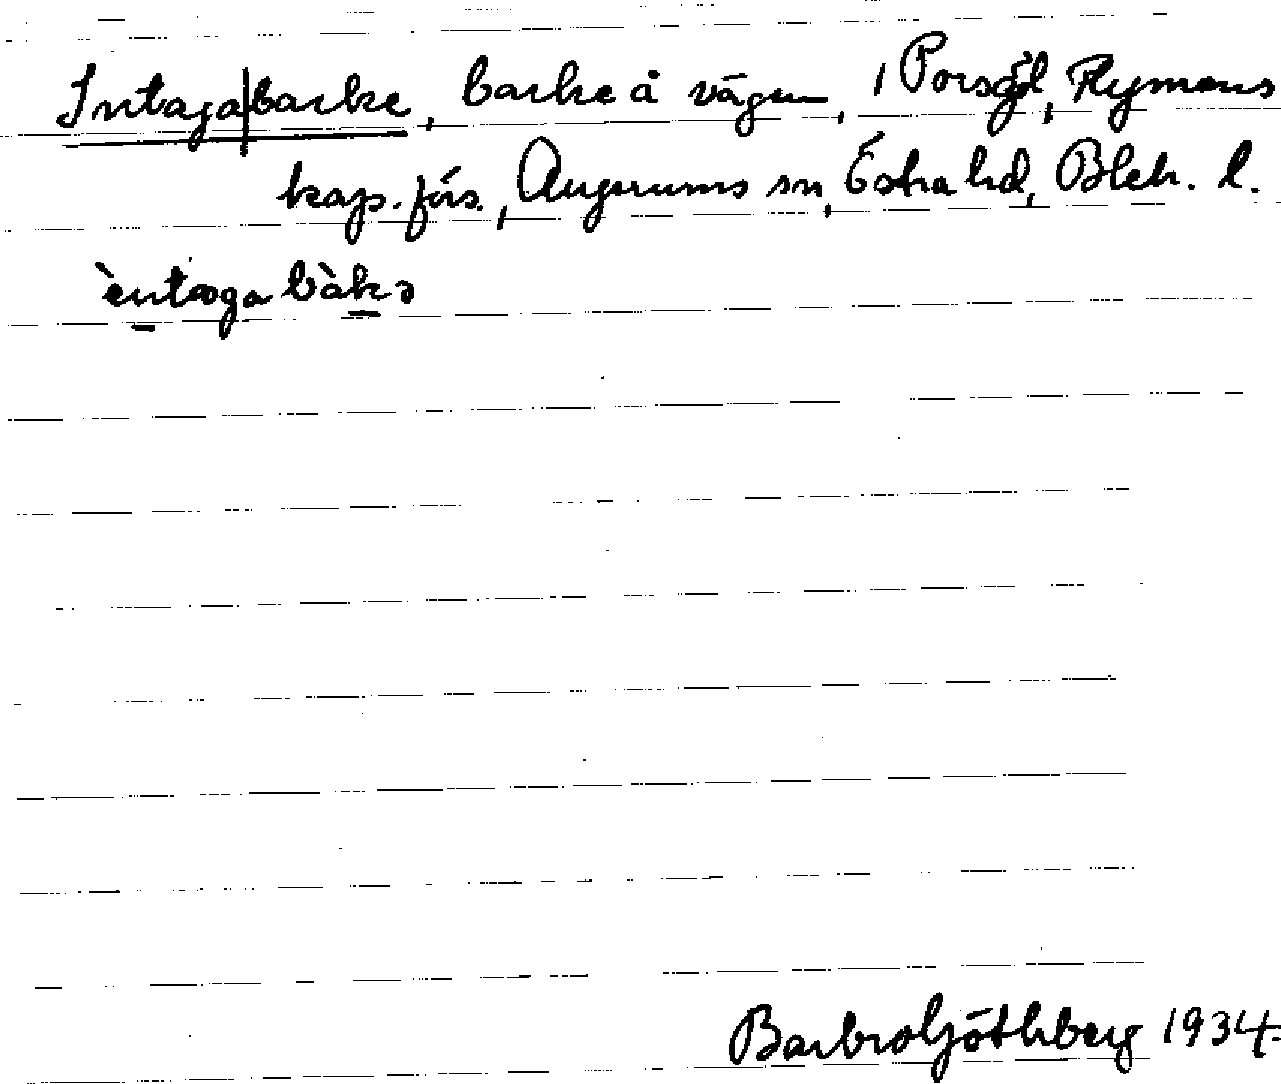 Intaga|backe, backe å vägen, i Porsgöl, Rymans
kap. förs., Augerums sn, Östra hd, Blek. l.
èntaga bàkə
Barbro Göthberg 1934.